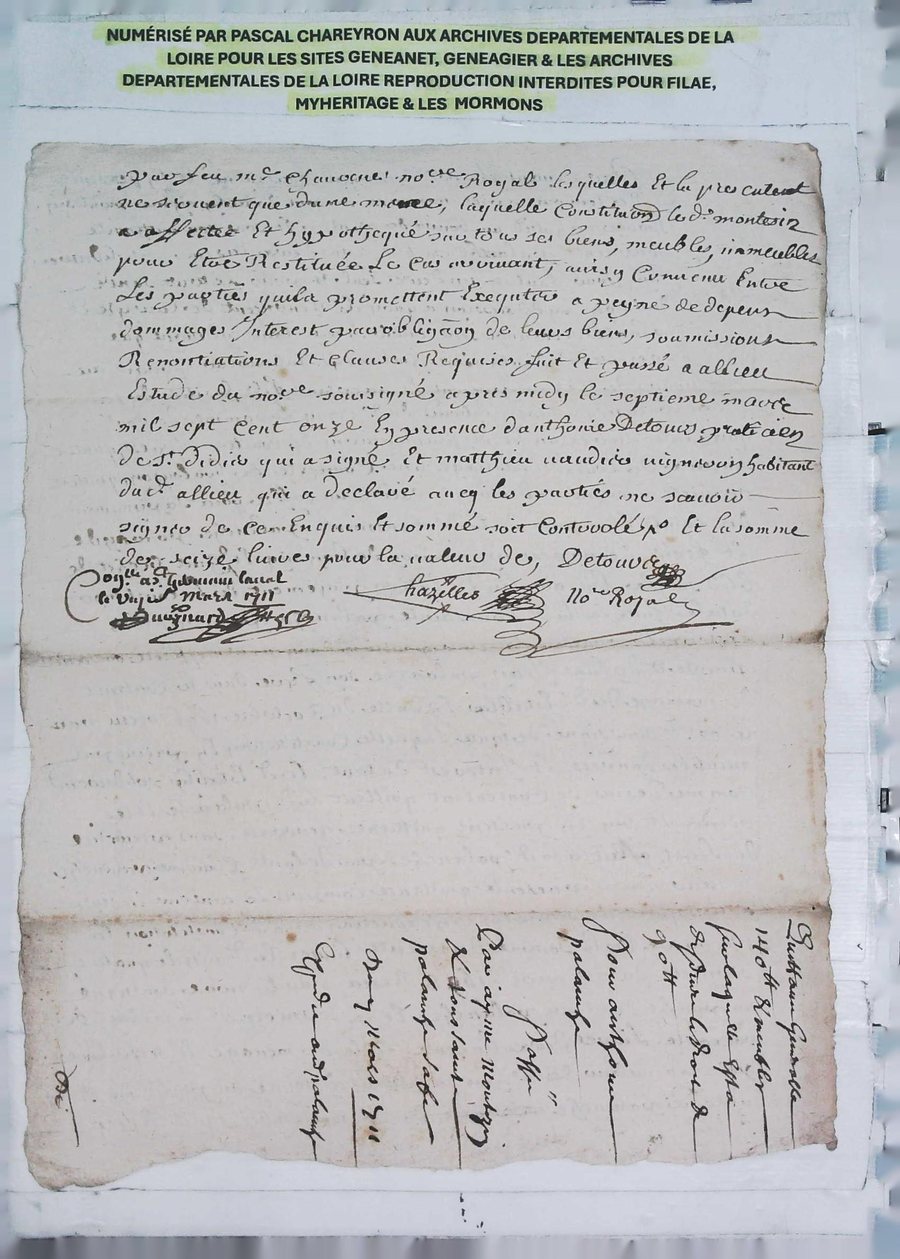 NUMÉRISÉ PAR PASCAL CHAREYRON AUX ARCHIVES DEPARTEMENTALES DE LA
LOIRE POUR LES SITES GENEANET, GENEAGIER & LES ARCHIVES
DEPARTEMENTALES DE LA LOIRE REPRODUCTION INTERDITES POUR FILAE,
MYHERITAGE & LES MORMONS
par feu me Chavocne nore Royal lesquelles Et la presentent
ne servent que dune mesme, laquelle Constituon led. montesin
a affectée Et hypothequé sur tous ses biens, meubles, immeubles
pour Etre Restituée Le Cas avivant, ainsy Convenu Entre
Les parties quila promettent Exequter a peyne de depens
dommages Interest par obligaon de leurs biens, soumissions
Renontiations Et clauses Requises, fait Et passé a allieu
Estude du nore soussigné apres midy le septieme mars
mil sept Cent onze En presence danthoine Detours praticien
de st. Didier qui a signé Et matthieu vaudier vigneron habitant
dud. allieu qui a declaré avecq les parties ne scavoir
signer de ce Enquis Et sommé soit Controolé, Et la somme
de seize livres pour la valeur de, Detours
a st Germain Laval
le mars 1711
Chazelles nore Royal
Quittance Generalle
140tt
90tt
Pour anthoine
palandre
Passée
Par ayme montesin
& toussainte
palandre sa fe
Du 7 Mars 1711